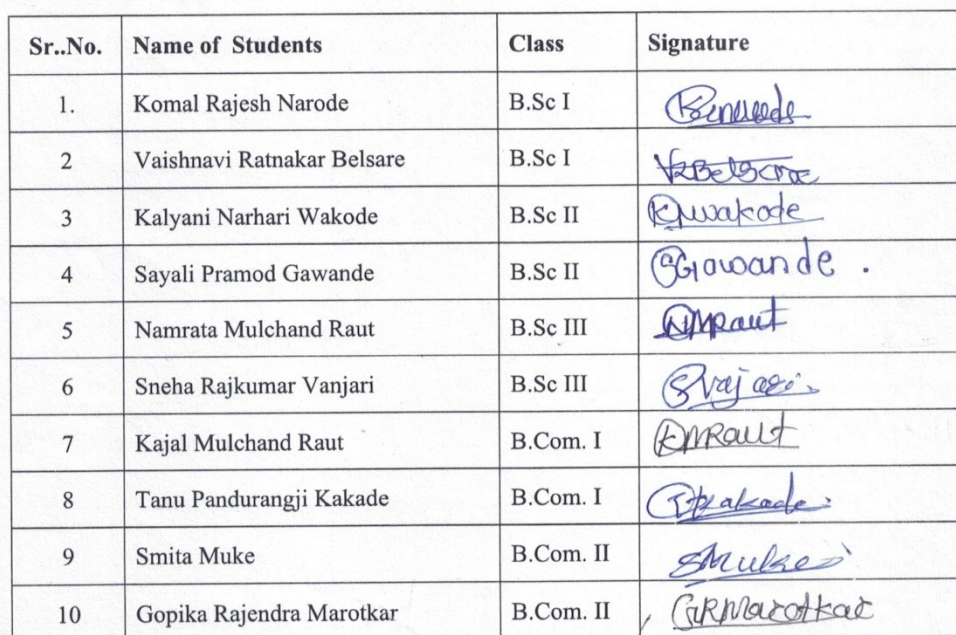 Sr..No. Name of Students Class Signature
1. Komal Rajesh Narode B.Sc I
2 Vaishnavi Ratnakar Belsare B.Sc I VRBelsare
3 Kalyani Narhari Wakode B.Sc II KNwakode
4 Sayali Pramod Gawande B.Sc II SGawande .
5 Namrata Mulchand Raut B.Sc III NMRaut
6 Sneha Rajkumar Vanjari B.Sc III
7 Kajal Mulchand Raut B.Com. I KMRaut
8 Tanu Pandurangji Kakade B.Com. I TPKakade
9 Smita Muke B.Com. II SMuke
10 Gopika Rajendra Marotkar B.Com. II GRMarotkar